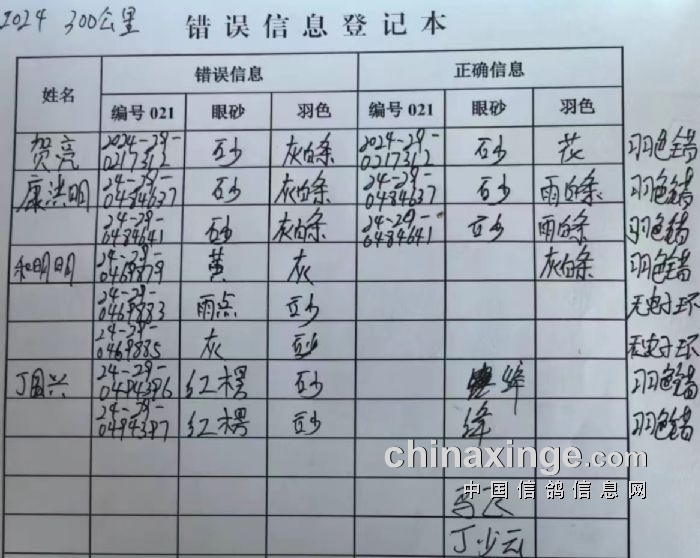 2024 300公里 错误信息登记本
姓名 错误信息 正确信息
编号 021 眼砂 羽色 编号 021 眼砂 羽色
贺亮 2024-29-0217312 砂 灰白条 2024-29-0217312 砂 花 羽色错
康洪明 24-29-0484637 砂 灰白条 24-29-0484637 砂 雨白条 羽色错
24-29-0484641 砂 灰白条 24-29-0484641 砂 雨白条 羽色错
和明明 24-29-0469879 黄 灰 灰白条 羽色错
24-29-0469883 雨点 砂 无电子环
24-29-0469885 灰 砂 无电子环
丁国兴 24-29-0494396 红楞 砂 绛 羽色错
24-29-0494397 红楞 砂 绛 羽色错
chinaxinge.com
中国信鸽信息网
丁少云